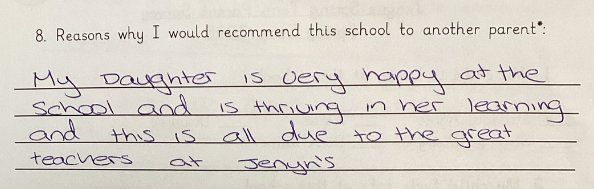 8. Reasons why I would recommend this school to another parent*:
My Daughter is very happy at the
School and is thriving in her learning
and this is all due to the great
teachers at Jenyn's